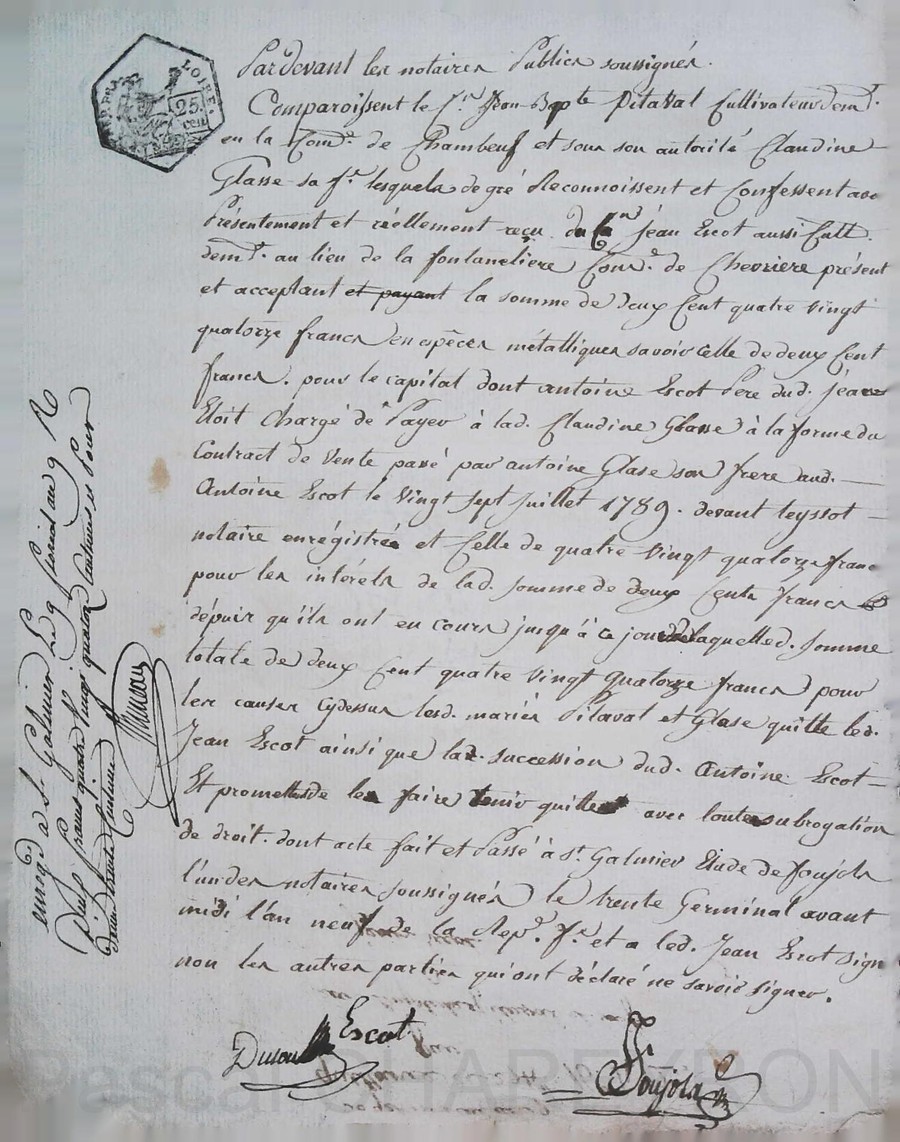 LOIRE
25.
CEN
Pardevant les notaires Publics soussignés.
Comparoissent le C.en Jean Bapte Pitaval Cultivateur demt.
en la Come. de Chambeuf et sous son autorité Claudine
Glasse sa fe. lesquels de gré Reconnoissent et Confessent avoir
Présentement et réellement reçu du Cen jean Escot aussi Cult.
demt. au lieu de la fontaneliere Come. de Chevriere présent
et acceptant et payant la somme de deux Cent quatre vingt
quatorze francs en espèces métalliques savoir celle de deux Cent
francs. pour le capital dont antoine Escot Pere dud. jean
Etoit Chargé de Payer à lad. Claudine Glasse à la forme du
Contract de vente passé par antoine Glase son frere aud.
Antoine Escot le vingt sept juillet 1789. devant teyssot
notaire enrégistrée et Celle de quatre vingt quatorze franc
pour les intérèts de lad. somme de deux Cents francs
dépuis qu'ils ont eu cours jusqu'à ce jour de laquelle d. somme
totale de deux Cent quatre vingt quatorze francs pour
les causes cydessus lesd. mariés Pitaval et Glase quitte led.
Jean Escot ainsi que lad. succession dud. Antoine Escot
Et promettes de les faire tenir quitte avec toute subrogation
de droit. dont acte fait et Passé à St. Galmier Etude de foujols
l'un des notaires soussignés le trente Germinal avant
midi l'an neuf de la Rep.e f.e et a led. Jean Escot sign
non les autres parties qui ont déclaré ne savoir signer.
Escot
Foujols
enregé a st Galmier le 9 floreal an 9 R
quatre
centimes